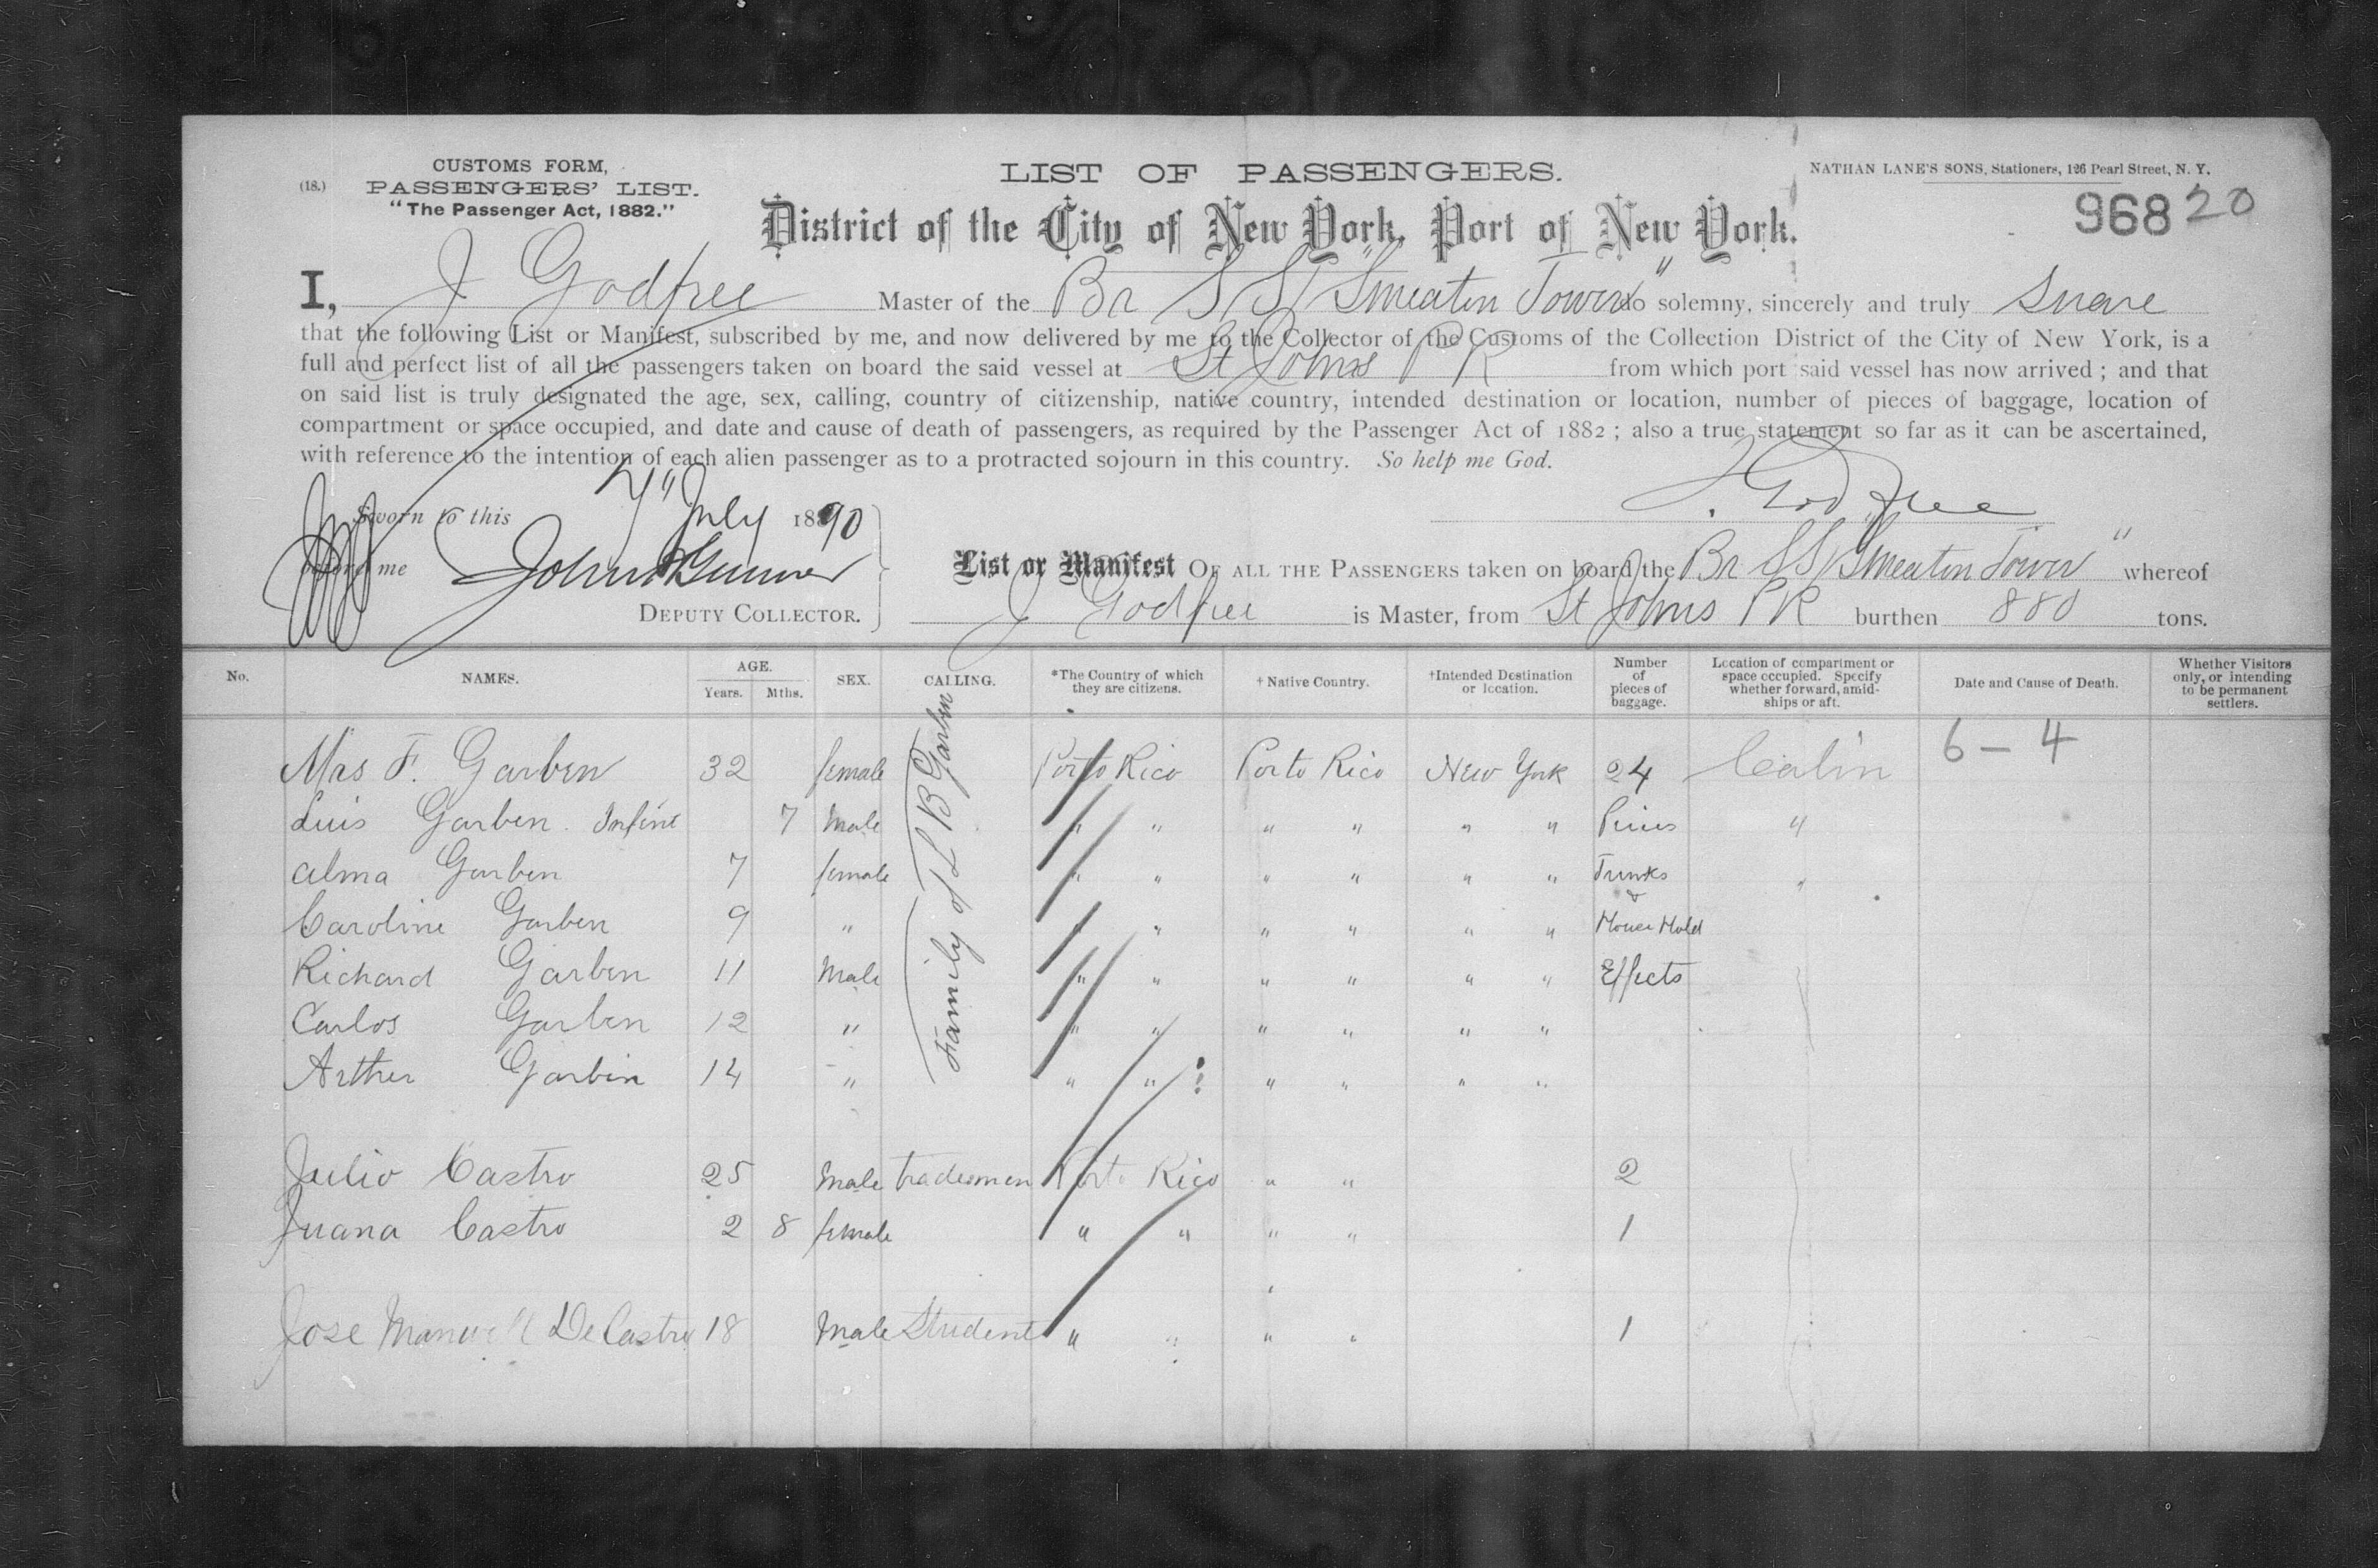 (18.)
CUSTOMS FORM,
PASSENGERS' LIST.
"The Passenger Act, 1882."
LIST OF PASSENGERS.
NATHAN LANE'S SONS, Stationers, 126 Pearl Street, N. Y.
District of the City of New York, Port of New York.
968 20
I, J Godfree Master of the Br S S "Smeaton Tower" do solemny, sincerely and truly swear
that the following List or Manifest, subscribed by me, and now delivered by me to the Collector of the Customs of the Collection District of the City of New York, is a
full and perfect list of all the passengers taken on board the said vessel at St Johns P R from which port said vessel has now arrived ; and that
on said list is truly designated the age, sex, calling, country of citizenship, native country, intended destination or location, number of pieces of baggage, location of
compartment or space occupied, and date and cause of death of passengers, as required by the Passenger Act of 1882 ; also a true statement so far as it can be ascertained,
with reference to the intention of each alien passenger as to a protracted sojourn in this country. So help me God.
Sworn to this 7" July 1890
J. Godfree
before me
DEPUTY COLLECTOR.
List or Manifest OF ALL THE PASSENGERS taken on board the Br S S "Smeaton Tower" whereof
J Godfree is Master, from St Johns P R burthen 880 tons.
No. NAMES. AGE. Years. Mths. SEX. CALLING. *The Country of which they are citizens. † Native Country. †Intended Destination or location. Number of pieces of baggage. Location of compartment or space occupied. Specify whether forward, amid-ships or aft. Date and Cause of Death. Whether Visitors only, or intending to be permanent settlers.
6 - 4
Family of L B Garben
Mrs F. Garben 32 female Porto Rico Porto Rico New York 24 Cabin
Luis Garben. Infint 7 Male " " " " " " Pieces "
Alma Garben 7 female " " " " " " Trunks "
&
Caroline Garben 9 " " " " " " " House Hold
Richard Garben 11 Male " " " " " " Effects
Carlos Garben 12 " " " " " " "
Arther Garbin 14 " " " " " " "
Julio Castro 25 Male tradesman Porto Rico " " 2
Juana Castro 2 8 female " " " " 1
Jose Manuell De Castro 18 Male Student " " " " 1